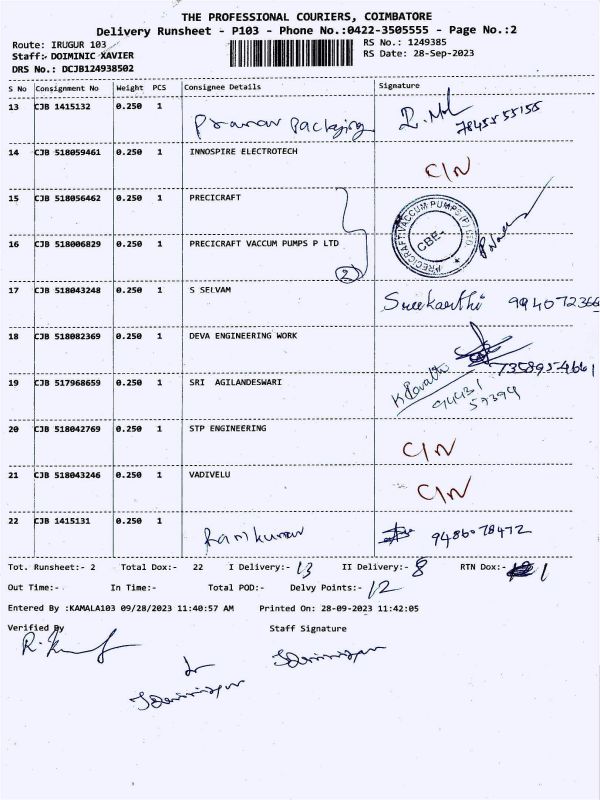 THE PROFESSIONAL COURIERS, COIMBATORE
Delivery Runsheet - P103 - Phone No.:0422-3505555 - Page No.:2
Route: IRUGUR 103 RS No.: 1249385
Staff:- DOIMINIC XAVIER RS Date: 28-Sep-2023
DRS No.: DCJB124938502
S No Consignment No Weight PCS Consignee Details Signature
13 CJB 1415132 0.250 1 Pranav Packaging 78455 55155
14 CJB 518059461 0.250 1 INNOSPIRE ELECTROTECH C/N
15 CJB 518056462 0.250 1 PRECICRAFT
PRECICRAFT VACCUM PUMPS (P) LTD. CBE-
16 CJB 518006829 0.250 1 PRECICRAFT VACCUM PUMPS P LTD
2
17 CJB 518043248 0.250 1 S SELVAM Sreekanthi
18 CJB 518082369 0.250 1 DEVA ENGINEERING WORK 7358954661
19 CJB 517968659 0.250 1 SRI AGILANDESWARI
94431
59394
20 CJB 518042769 0.250 1 STP ENGINEERING C/N
21 CJB 518043246 0.250 1 VADIVELU C/N
22 CJB 1415131 0.250 1 Ramkumar 9486078472
Tot. Runsheet:- 2 Total Dox:- 22 I Delivery:- 13 II Delivery:- 8 RTN Dox:- 1
Out Time:- In Time:- Total POD:- Delvy Points:- 12
Entered By :KAMALA103 09/28/2023 11:40:57 AM Printed On: 28-09-2023 11:42:05
Verified By Staff Signature